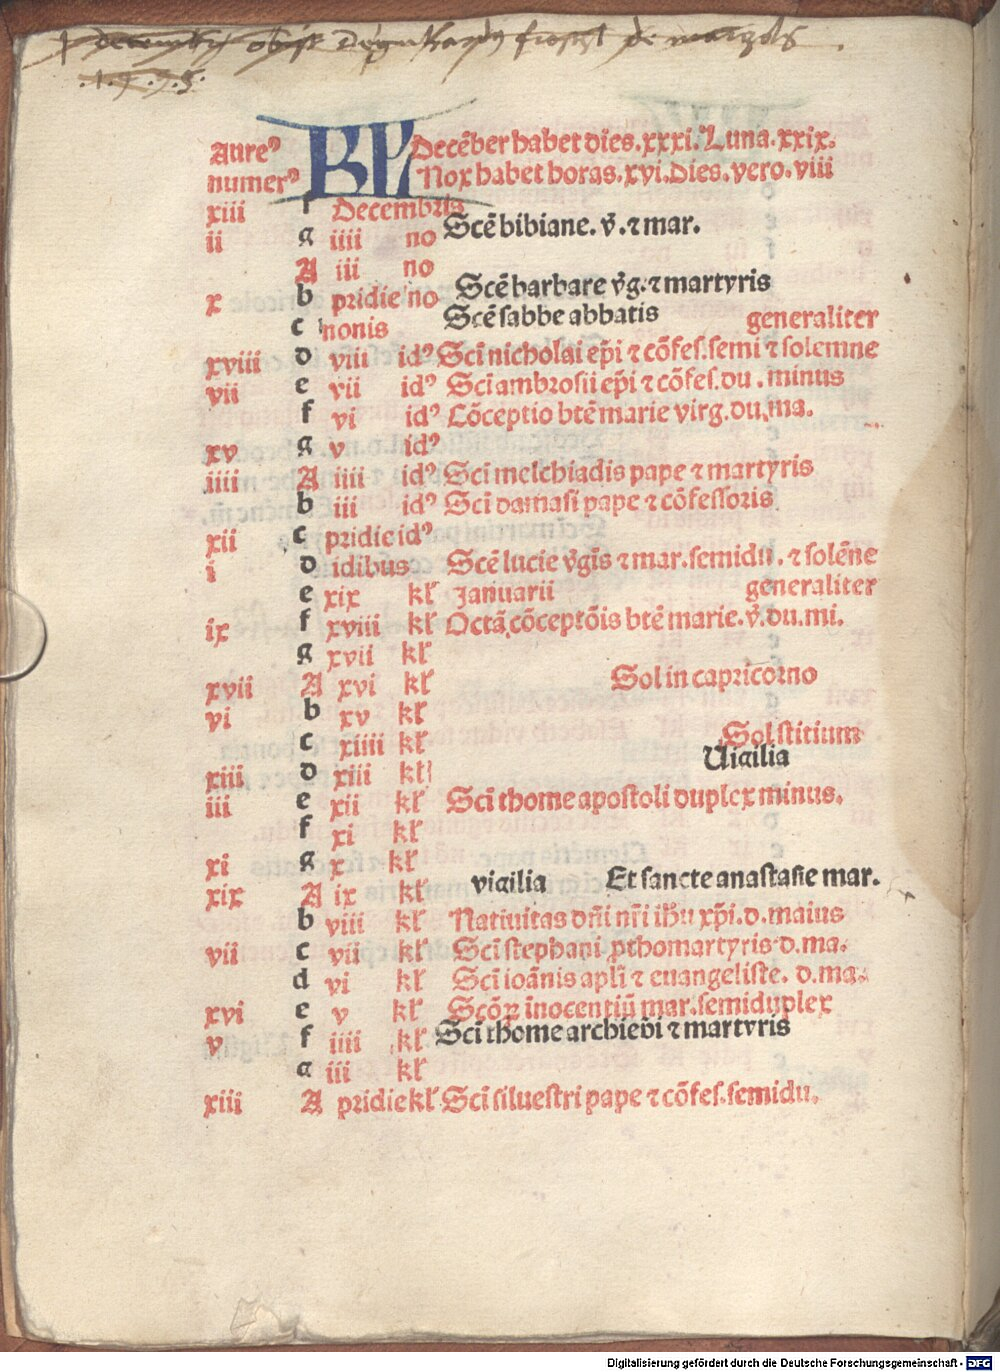 decembris obijt
.1.5.7.5.
Aureꝰ KL Decēber habet dies.xxxi.Luna.xxix.
numerꝰ Nox habet horas.xvi.Dies.vero.viii
xiii f Decembris
ii g iiii no Scē bibiane. v̄.⁊ mar.
A iii no
x b pridie no Scē barbare v̄g.⁊ martyris
c nonis Scē sabbe abbatis generaliter
xviii d viii idꝰ Sci nicholai ep̄i ⁊ cōfes.semi ⁊ solemne
vii e vii idꝰ Sci ambrosii ep̄i ⁊ cōfes.du.minus
f vi idꝰ Cōceptio btē marie virg.du.ma.
xv g v idꝰ
iiii A iiii idꝰ Sci melchiadis pape ⁊ martyris
b iii idꝰ Sci damasi pape ⁊ cōfessoris
xii c pridie idꝰ
i d idibus Scē lucie v̄gīs ⁊ mar.semidu.⁊ solēne
e xix kl̄ Januarii generaliter
ix f xviii kl̄ Octa.cōceptōis btē marie.v̄.du.mi.
g xvii kl̄
xvii A xvi kl̄ Sol in capricorno
vi b xv kl̄
c xiiii kl̄ Solstitium
xiii d xiii kl̄ Uigilia
iii e xii kl̄ Sci thome apostoli duplex minus.
f xi kl̄
xi g x kl̄
xix A ix kl̄ vigilia Et sancte anastasie mar.
b viii kl̄ Nativitas dn̄i nr̄i ih̄u xp̄i.d.maius
vii c vii kl̄ Sci stephani p̲thomartyris d.ma.
d vi kl̄ Sci ioānis apl̄i ⁊ euangeliste. d.ma.
xvi e v kl̄ Scōꝝ īnocentiū mar.semiduplex
v f iiii kl̄ Sci thome archiep̄i ⁊ martyris
g iii kl̄
xiii A pridie kl̄ Sci siluestri pape ⁊ cōfes.semidu.
Digitalisierung gefördert durch die Deutsche Forschungsgemeinschaft - DFG